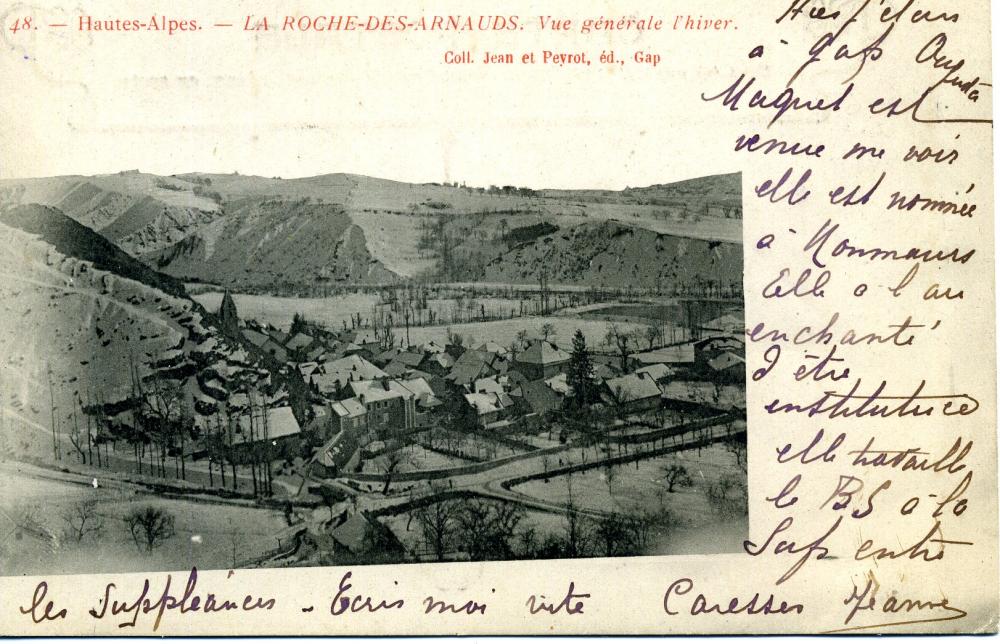 48. — Hautes-Alpes. — LA ROCHE-DES-ARNAUDS. Vue générale l'hiver.
Coll. Jean et Peyrot, éd., Gap
Hier j'étais
à Gap
Maquet est
venue me voir
elle est nommée
à
Elle a l'air
enchanté
d'être
institutrice
elle travaille
le BS à la
entre
les Suppléances - Ecris moi vite Caresses Jeanne